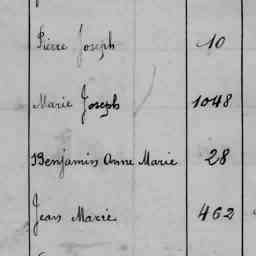 Pierre Joseph 10
Marie Joseph 1048
Benjamin Anne Marie 28
Jean Marie 462